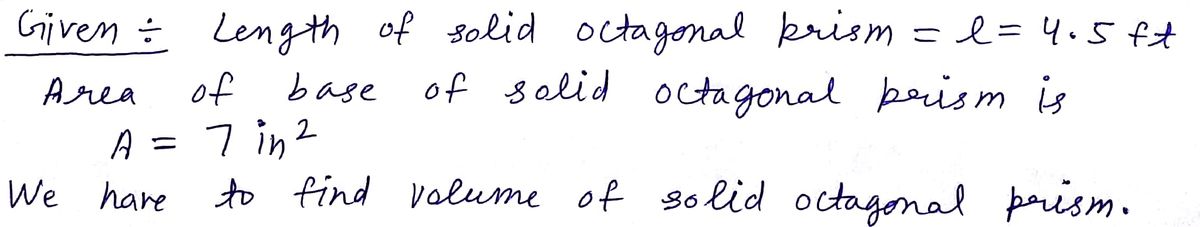 Given ÷ Length of solid octagonal prism = l = 4.5 ft
Area of base of solid octagonal prism is
A = 7 in²
We have to find volume of solid octagonal prism.